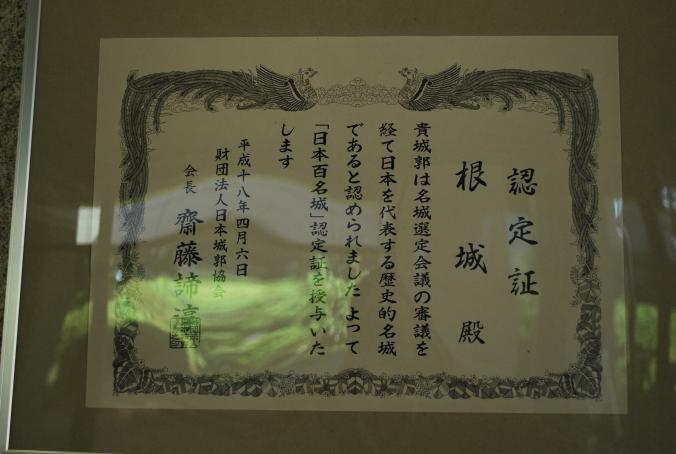 認定証
根城 殿
貴城郭は名城選定会議の審議を
経て日本を代表する歴史的名城
であると認められました よって
「日本百名城」認定証を授与いた
します
平成十八年四月六日
財団法人日本城郭協会
会長 齋藤諦淳